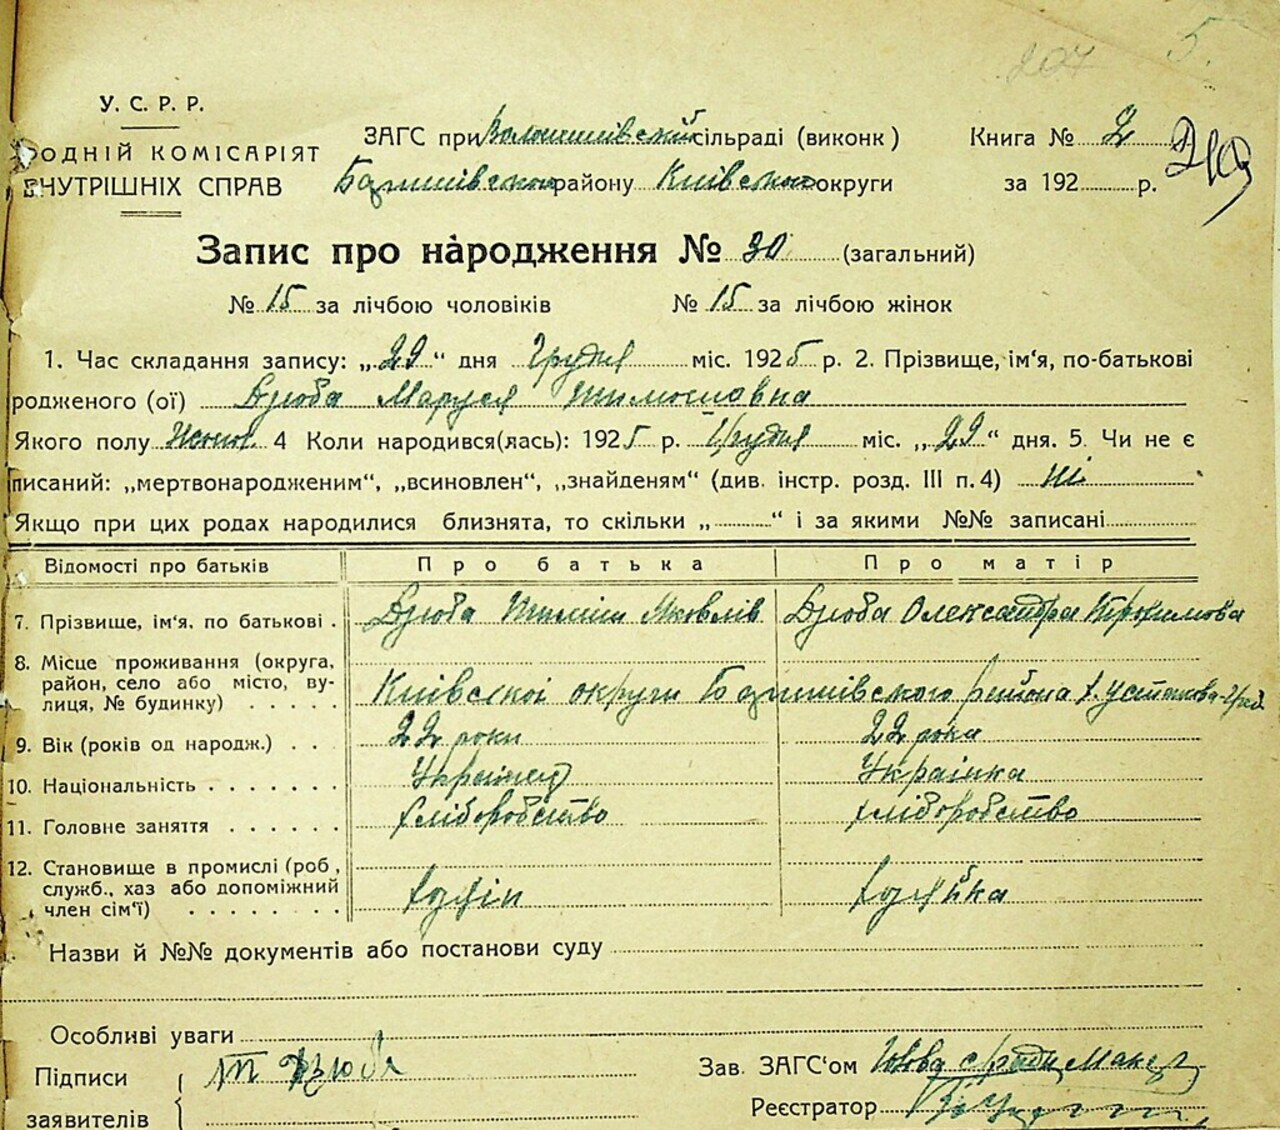 207 5.
У. С. Р. Р.
РОДНІЙ КОМІСАРІЯТ
ВНУТРІШНІХ СПРАВ
ЗАГС при сільраді (виконк)
району Київської округи
Книга № 2
за 192 р.
Запис про народження № 30 (загальний)
№ 15 за лічбою чоловіків № 15 за лічбою жінок
1. Час складання запису: „29“ дня Грудня міс. 1925 р. 2. Прізвище, ім'я, по-батькові
родженого (ої) Дзюба Маруся Тимошівна
Якого полу Жіноч. 4 Коли народився(лась): 1925 р. Грудня міс. „29“ дня. 5. Чи не є
писаний: „мертвонародженим“, „всиновлен“, „знайденям“ (див. інстр. розд. III п. 4) Ні
Якщо при цих родах народилися близнята, то скільки „ “ і за якими №№ записані
Відомості про батьків Про батька Про матір
7. Прізвище, ім'я, по батькові . Дзюба Тиміш Яковлів Дзюба Олександра Трохимова
8. Місце проживання (округа,
район, село або місто, ву-
лиця, № будинку) . . . . . Київської округи района х.
9. Вік (років од народж.) . . . 22 роки 22 роки
10. Національність . . . . . . . Українец Українка
11. Головне заняття . . . . . . хліборобство хліборобство
12. Становище в промислі (роб,
служб., хаз або допоміжний
член сім'ї) . . . . . . . . хазяїн хазяйка
Назви й №№ документів або постанови суду
Особливі уваги
Підписи
заявителів
Т Дзюба
Зав. ЗАГС'ом
Реєстратор